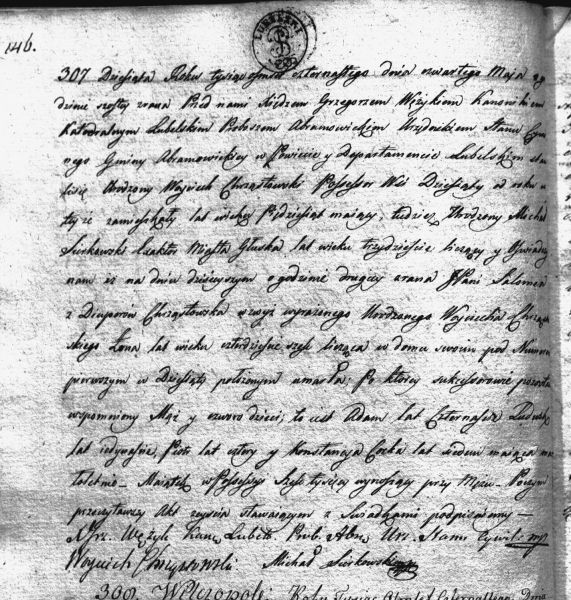 146.
307 Dziesiąta Roku tysiącznego ośmset czternastego dnia czwartego Maja o go
dzinie szóstey zrana Przed nami Xiędzem Grzegorzem Wężykiem Kanonikiem
Katedralnym Lubelskim Proboszczem Abramowickim Urzędnikiem Stanu Cywil
nego Gminy Abramowickiey w Powiecie y Departamencie Lubelskim sta
wił się Urodzony Woyciech Chrząstowski Possessor Wsi Dziesiąty w roku
tyże zamieszkały lat wieku Pięćdziesiąt maiący; tudzież Urodzony Michał
Siórkowski Miasta Głuska lat wieku trzydzieście liczący y Oświadczy
nam iż na dniu dzisieyszym o godzinie drugiey zrana JPani Salomea
z Chrząstowska wzwyż wyrażonego Urodzonego Woyciecha Chrząsto
wskiego Żona lat wieku czterdzieście sześć licząca w domu swoim pod Numerem
pierwszym w Dziesiąty położonym umarła; Po którey sukcessorowie pozostali
wspomniony Mąż y czworo dzieci; to iest Adam lat Czternaście Ludwik
lat iedynaście, Piotr lat cztery y Konstancya Córka lat siedem maiąca ma
łoletnie Maiątek w Possessyi Sześć tysięcy wynoszący przy Mężu. Poczym
przeczytawszy Akt zeyścia stawaiącym z świadkami podpisaliśmy
X. Grz. Wężyk Kan. Lubels. Prob. Abra. Urz. Stanu Cywil. mp
Woyciech Chrząstowski Michał Siórkowski
308 Wilczopole Roku Tysiąc Czternastego Dnia